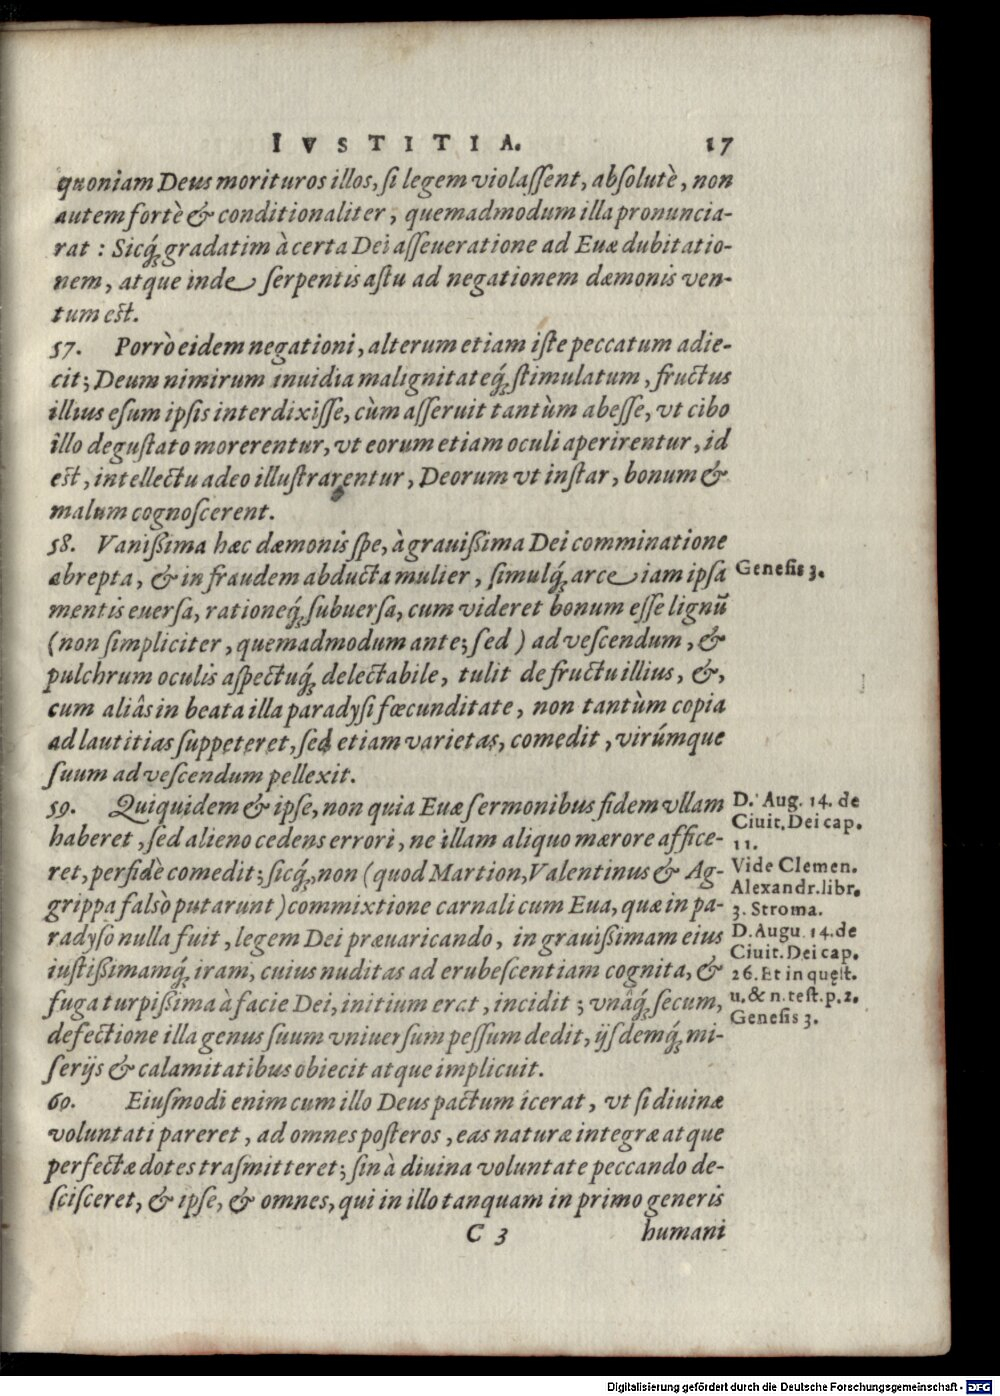 IVSTITIA. 17
quoniam Deus morituros illos, si legem violassent, absolutè, non
autem fortè & conditionaliter, quemadmodum illa pronuncia-
rat: Sicq́; gradatim à certa Dei asseueratione ad Euæ dubitatio-
nem, atque inde serpentis astu ad negationem dæmonis ven-
tum est.
57. Porrò eidem negationi, alterum etiam iste peccatum adie-
cit; Deum nimirum inuidia malignitateq́; stimulatum, fructus
illius esum ipsis interdixisse, cùm asseruit tantùm abesse, vt cibo
illo degustato morerentur, vt eorum etiam oculi aperirentur, id
est, intellectu adeo illustrarentur, Deorum vt instar, bonum &
malum cognoscerent.
58. Vanißima hæc dæmonis spe, à grauißima Dei comminatione
abrepta, & in fraudem abducta mulier, simulq́; arce iam ipsa
Genesis 3.
mentis euersa, rationeq́; subuersa, cum videret bonum esse lignū
(non simpliciter, quemadmodum ante; sed) ad vescendum, &
pulchrum oculis aspectuq́; delectabile, tulit de fructu illius, &,
cum aliâs in beata illa paradysi fœcunditate, non tantùm copia
ad lautitias suppeteret, sed etiam varietas, comedit, virúmque
suum ad vescendum pellexit.
59. Quiquidem & ipse, non quia Euæ sermonibus fidem vllam
haberet, sed alieno cedens errori, ne illam aliquo mærore affice-
ret, perfidè comedit; sicq́;, non (quod Martion, Valentinus & Ag-
grippa falsò putarunt) commixtione carnali cum Eua, quæ in pa-
radyso nulla fuit, legem Dei præuaricando, in grauißimam eius
iustißimamq́; iram, cuius nuditas ad erubescentiam cognita, &
fuga turpißima à facie Dei, initium erat, incidit; vnâq́; secum,
defectione illa genus suum vniuersum pessum dedit, ijsdemq́; mi-
serijs & calamitatibus obiecit atque implicuit.
D. Aug. 14. de
Ciuit. Dei cap.
11.
Vide Clemen.
Alexandr. libr.
3. Stroma.
D. Augu. 14. de
Ciuit. Dei cap.
26. Et in quęst.
u. & n. test. p. 2.
Genesis 3.
60. Eiusmodi enim cum illo Deus pactum icerat, vt si diuinæ
voluntati pareret, ad omnes posteros, eas naturæ integræ atque
perfectæ dotes trasmitteret; sin à diuina voluntate peccando de-
scisceret, & ipse, & omnes, qui in illo tanquam in primo generis
C 3 humani
Digitalisierung gefördert durch die Deutsche Forschungsgemeinschaft - DFG